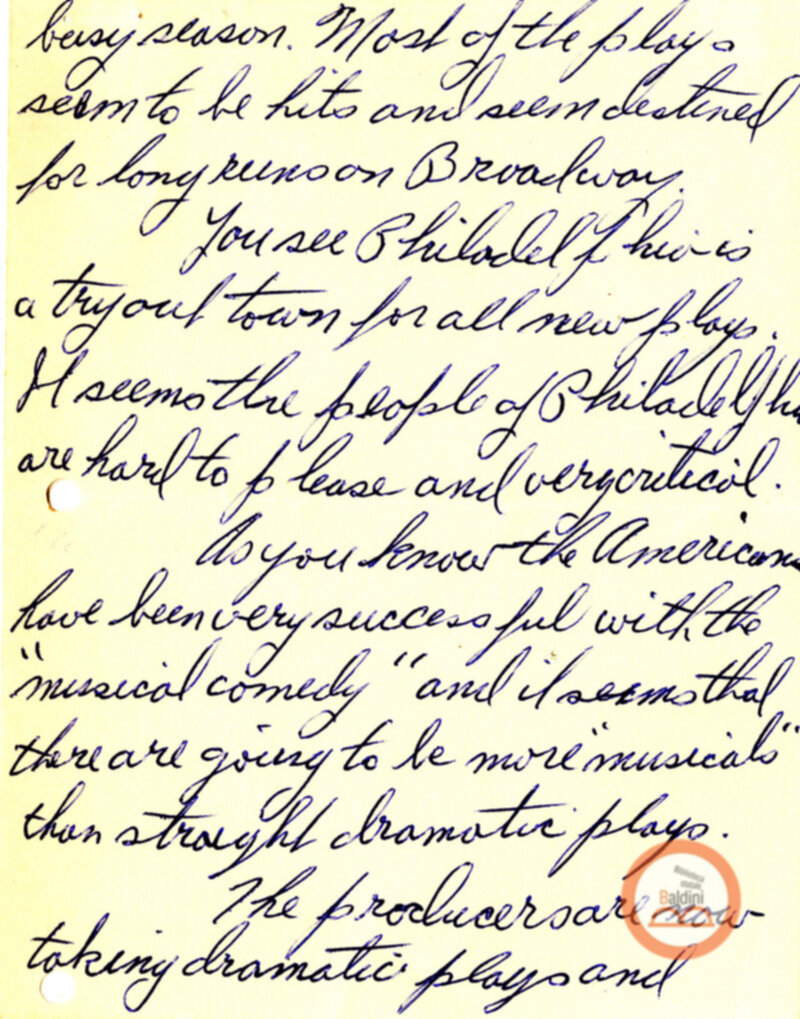 busy season. Most of the plays
seem to be hits and seem destined
for long runs on Broadway.
You see Philadelphia is
a tryout town for all new plays.
It seems the people of Philadelphia
are hard to please and very critical.
As you know the Americans
have been very successful with the
"musical comedy" and it seems that
there are going to be more "musicals"
than straight dramatic plays.
The producers are now
taking dramatic plays and
Biblioteca
statale
Baldini